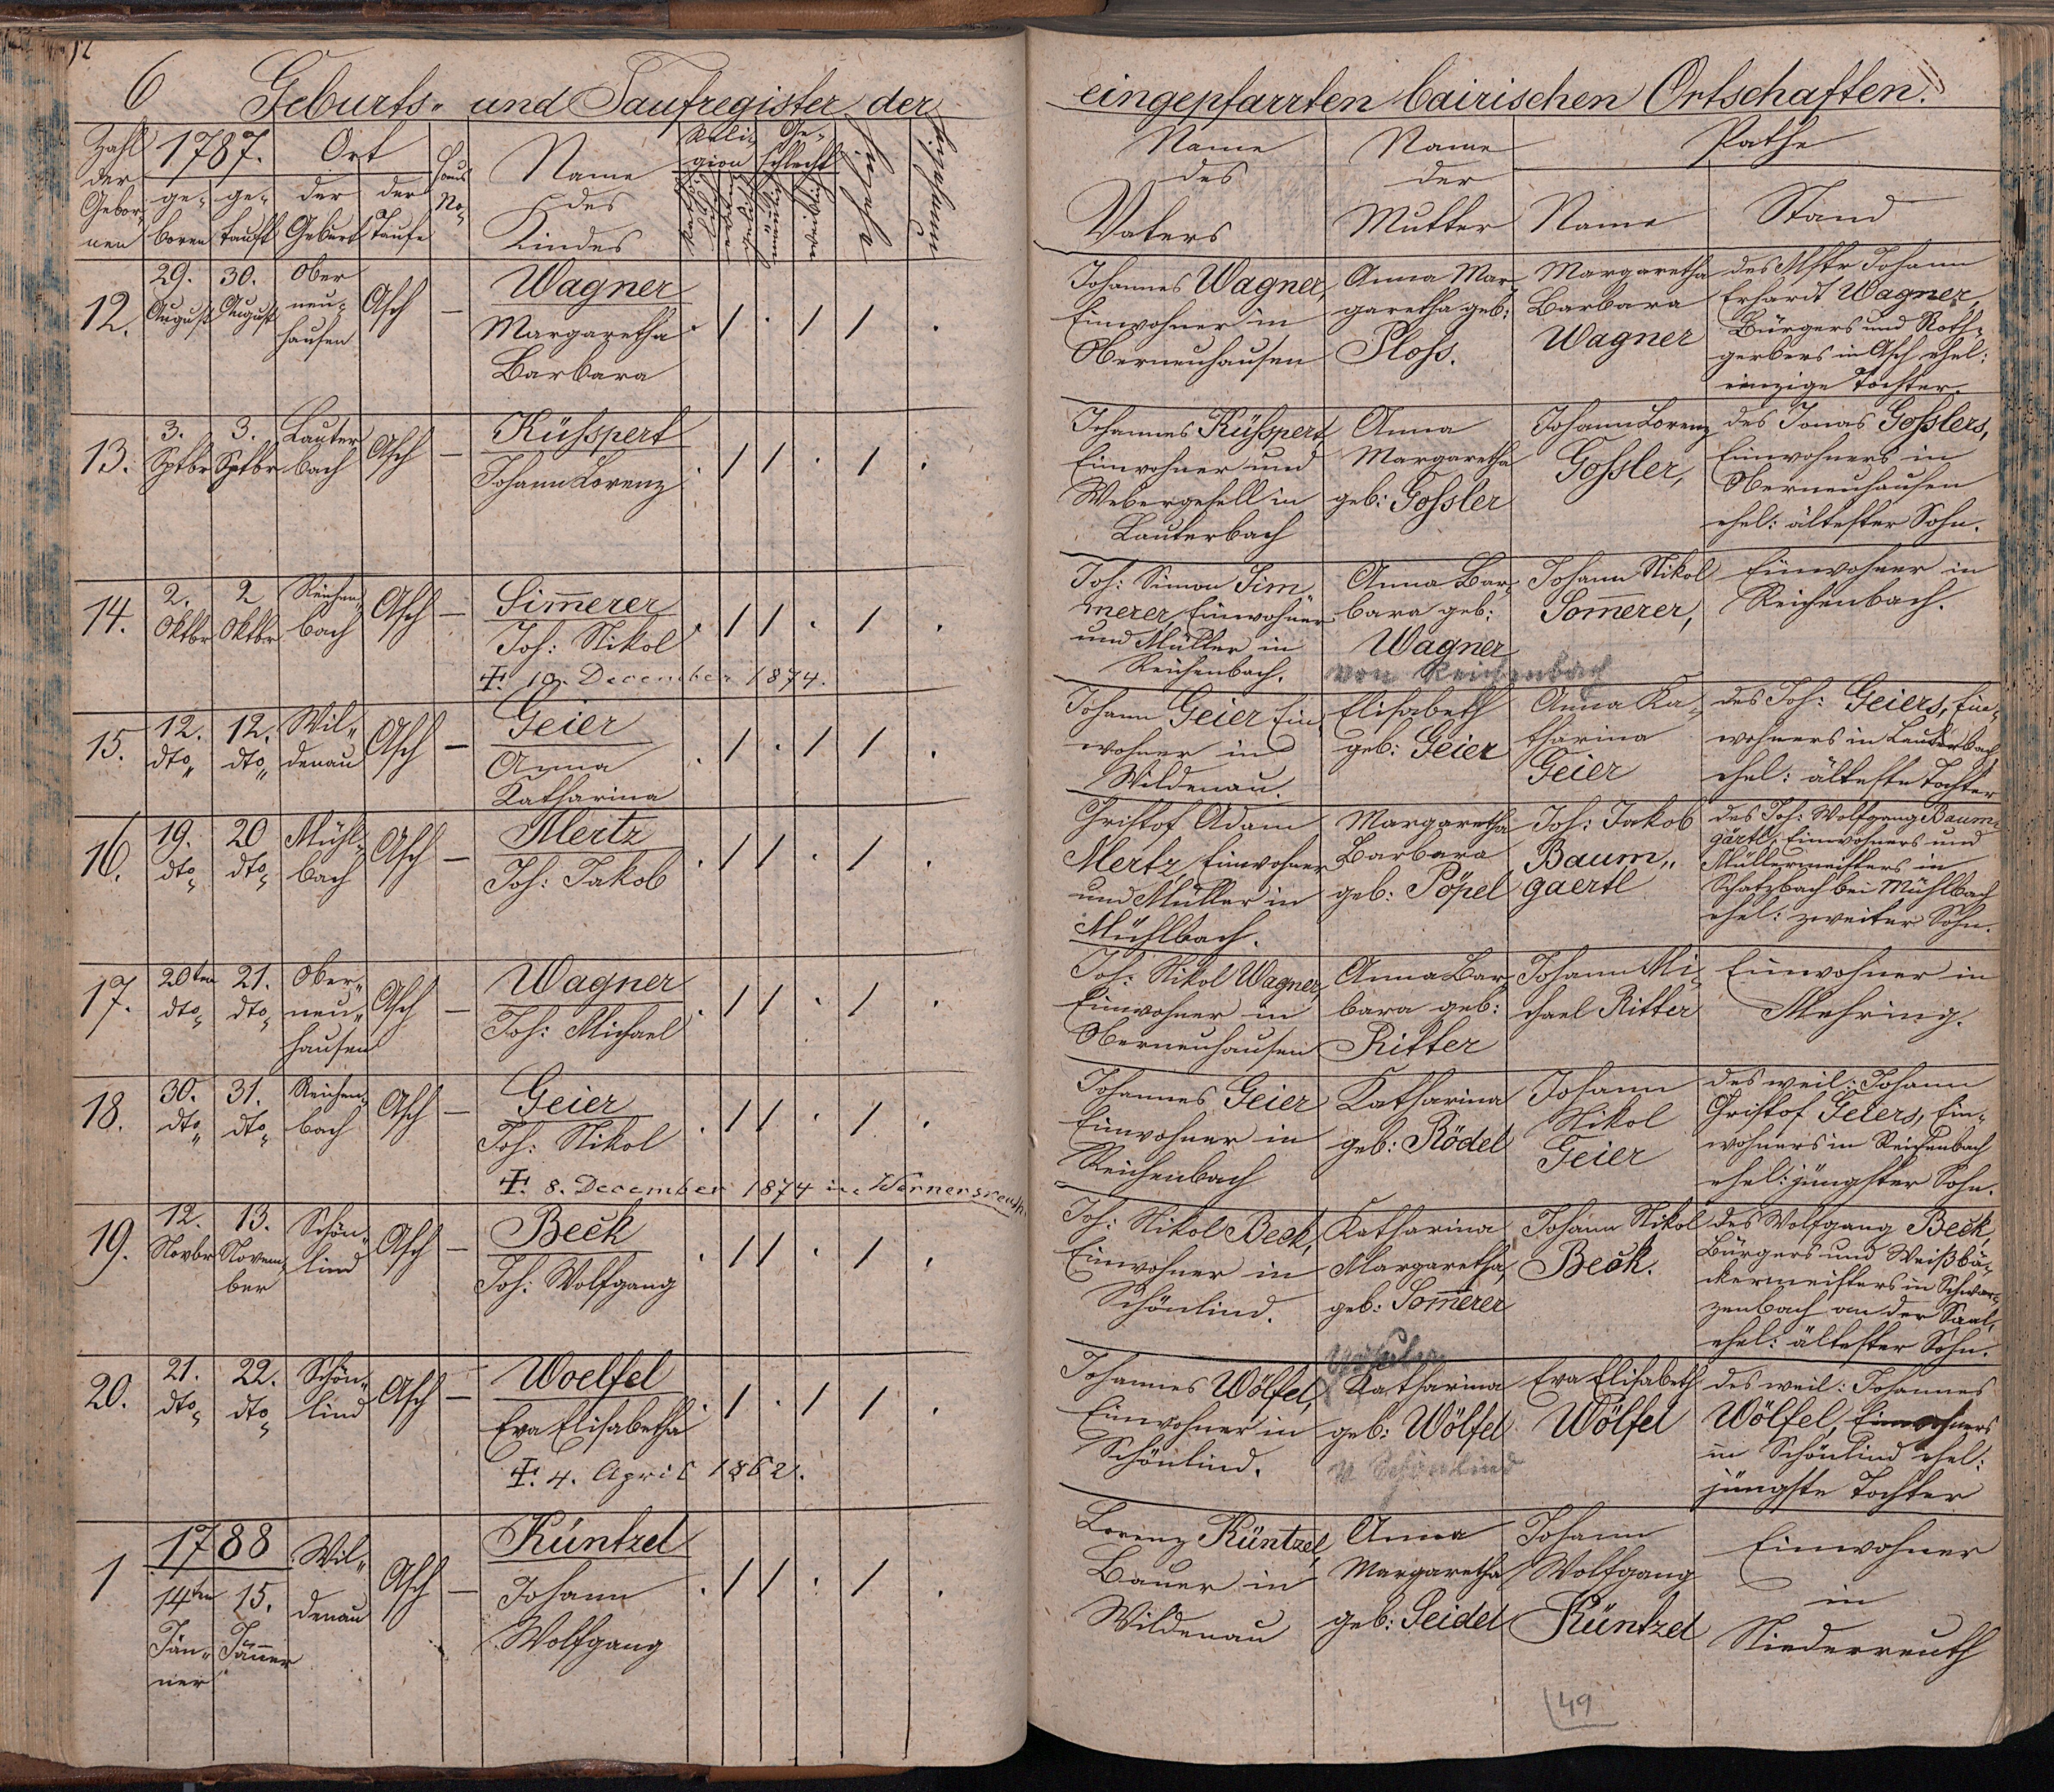 6 Geburts- und Taufregister der eingepfarrten bairischen Ortschaften.
Zahl der Gebornen
1787.
geboren
getauft
Ort
der Geburt
der Taufe
Haus No.
Name des Kindes
Religion
katholisch
evangelisch
Geschlecht
männlich
weiblich
Name des Vaters
Name der Mutter
Pathe
Name
Stand
12.
29. August
30. August
Ober
neu-
hausen
Asch
–
Wagner
Margaretha
Barbara
Johannes Wagner,
Einwohner in
Oberneuhausen
Anna Mar-
garetha geb:
Ploss.
Margaretha
Barbara
Wagner
des Mstr Johann
Erhardt Wagner,
Bürgers und Roth-
gerbers in Asch ehel:
einzige Tochter
13.
3. Sptbr
3. Sptbr
Lauter
bach
Asch
–
Küsspert
Johann Lorenz
Johannes Küsspert
Einwohner und
Webergesell in
Lauterbach
Anna
Margaretha
geb: Gossler
Johann Lorenz
Gossler,
des Jonas Gosslers,
Einwohners in
Oberneuhausen
ehel: ältester Sohn.
14.
2. Oktbr
2 Oktbr
Reichen-
bach
Asch
–
Sim̅erer
Joh: Nikol
Ɨ. 10. December 1874.
Joh: Simon Sim-
merer, Einwohner
und Müller in
Reichenbach.
Anna Bar-
bara geb:
Wagner
von Reichenbach
Johann Nikol
Som̅erer,
Einwohner in
Reichenbach.
15.
12. dto
12. dto
Wil-
denau
Asch
–
Geier
Anna
Katharina
Johann Geier Ein-
wohner in
Wildenau.
Elisabeth
geb: Geier
Anna Ka-
tharina
Geier
des Joh: Geiers, Ein-
wohners in Lauterbach
ehel: älteste Tochter
16.
19. dto
20 dto
Mühl-
bach
Asch
–
Mertz
Joh: Jakob
Christof Adam
Mertz, Einwohner
und Müller in
Mühlbach.
Margaretha
Barbara
geb: Pöpel
Joh: Jakob
Baum-
gaertl
des Joh: Wolfgang Baum-
gärtl, Einwohners und
Müllermeisters in
Schatzbach bei Mühlbach
ehel: zweiter Sohn.
17.
20ten dto
21. dto
Ober-
neu-
hausen
Asch
–
Wagner
Joh: Michael
Joh: Nikol Wagner,
Einwohner in
Oberneuhausen
Anna Bar-
bara geb:
Ritter
Johann Mi-
chael Ritter
Einwohner in
Mehring.
18.
30. dto
31. dto
Reichen-
bach
Asch
–
Geier
Joh: Nikol
Ɨ. 8. December 1874 in Wernersreuth.
Johannes Geier
Einwohner in
Reichenbach
Katharina
geb: Rödel
Johann
Nikol
Geier
des weil: Johann
Christof Geiers, Ein-
wohners in Reichenbach
ehel: jüngster Sohn.
19.
12. Novbr
13. Novem-
ber
Schön-
lind
Asch
–
Beck
Joh: Wolfgang
Joh: Nikol Beck,
Einwohner in
Schönlind.
Katharina
Margaretha,
geb: Som̅erer
Johann Nikol
Beck.
des Wolfgang Beck,
Bürgers und Weißbä-
ckermeisters in Schwar-
zenbach an der Saal,
ehel: ältester Sohn.
20.
21. dto
22. dto
Schön-
lind
Asch
–
Woelfel
Eva Elisabetha
Ɨ. 4. April 1862.
Johannes Wölfel,
Einwohner in
Schönlind.
Katharina
geb: Wölfel
v Schönlind
Eva Elisabeth
Wölfel
des weil: Johannes
Wölfel, Einwohners
in Schönlind ehel:
jüngste Tochter
1
1788
14ten Jän-
ner
15. Jän̅er
Wil-
denau
Asch
–
Küntzel
Johann
Wolfgang
Lorenz Küntzel,
Bauer in
Wildenau
Anna
Margaretha
geb: Seidel
Johann
Wolfgang
Küntzel
Einwohner
in
Niederreuth
49